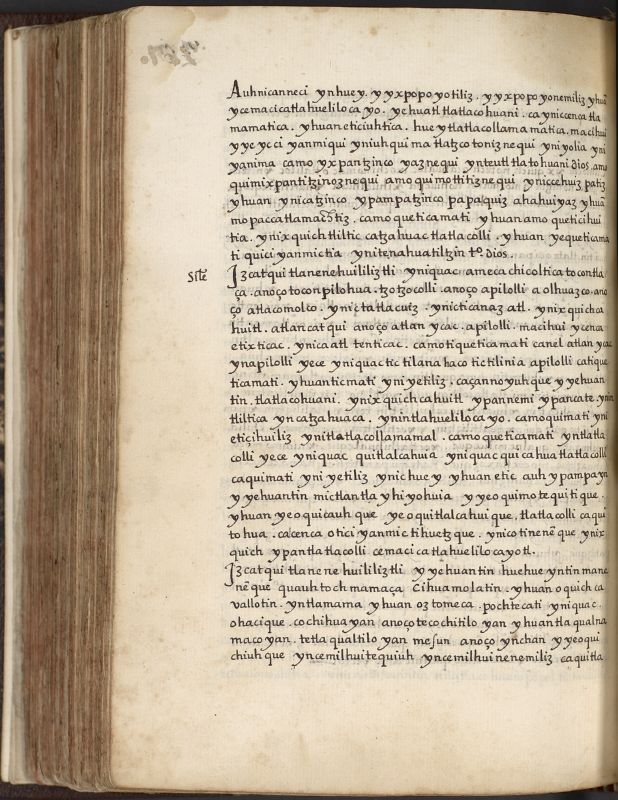 Auh nicanneci yn huey. y yxpopoyotiliz. y yxpopoyonemiliz yhuã
ycemacicatlahueliloca yo. yehuatl tlatlacohuani. ca yniccenca tla
mamatica. yhuan eticiuhtica. hueytlatlacollamamatica. macihui
y ye ycci yanmiqui yniuhqui ma tlatzcotoniz nequi yniyolia yni
yanima camo yxpantzinco yaz nequi ynteutl tlatohuani dios. amo
quimixpantitzinoz nequi amo quimottitiz nequi yniccehuiz patiz
yhuan ynicatzinco ypampatzinco papaquiz ahahuiyaz yhuã
mopaccatlamachtiz. camo queticamati yhuan amo queticihui
tia. ynixquich tliltic catzahuac tlatlacolli. yhuan yequeticama
ti quiciyanmictia ynitenahuatiltzin tº dios.
Sitẽ
Izcatqui tlanenehuililiztli yniquac ameca chicoltica tocontla
ça. anoço toconpilohua. tzotzocolli. anoço apilolli aolhuazco. ano
ço atlacomolco. ynictatlacuiz. ynicticanaz atl. ynixquichca
huitl. atlan catqui anoço atlan ycac. apilolli. macihui ycenca
etixticac. ynica atl tenticac. camo tiqueticamati canel atlan ycac
ynapilolli yece yniquac tictilana haco tictilinia apilolli catique
ticamati. yhuan ticmati yniyetiliz. caçannoyuhque y yehuan
tin. tlatlacohuani. ynixquichcahuitl ypannemi ypancate. ynin
tliltica yncatzahuaca. ynintlahueliloca yo. camo quimati yni
etiçihuiliz ynitlatlacollamamal. camo queticamati yntlatla
colli yece yniquac quitlalcahuia yniquac quicahua tlatlacolli
caquimati yniyetiliz ynichuey yhuan etic auh ypampa yn
y yehuantin mictlantla yhiyohuia y yeoquimotequitique.
yhuan yeoquicauhque yeoquitlalcahuique. tlatlacolli caqui
tohua. cacenca oticiyanmictihuetzque. ynicotinenẽque ynix
quich ypan tlatlacolli cemacicatlahuelilocayotl.
Izcatqui tlanenehuililiztli y yehuantin huehueyntin mane
nẽque quauhtochmamaça Cihuamolatin. yhuan oquichca
vallotin. yntlamama yhuan oztomeca. pochtecati yniquac.
ohacique. cochihuayan anoço tecochitiloyan yhuan tlaqualna
macoyan. tetlaqualtiloyan mesun anoço ynchan y yeoqui
chiuhque yncemilhuitequiuh yncemilhuinenemiliz caquitla